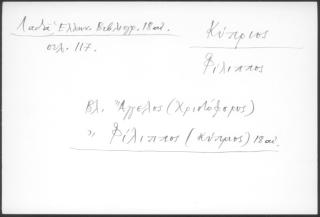 Λαδᾶ Ἑλλην. Βιβλιογρ. 18 αἰ.
σελ. 117.
Κύπριος
Φίλιππος
Βλ. Ἄγγελος (Χριστόφορος)
" Φίλιππος (Κύπριος) 18 αἰ.